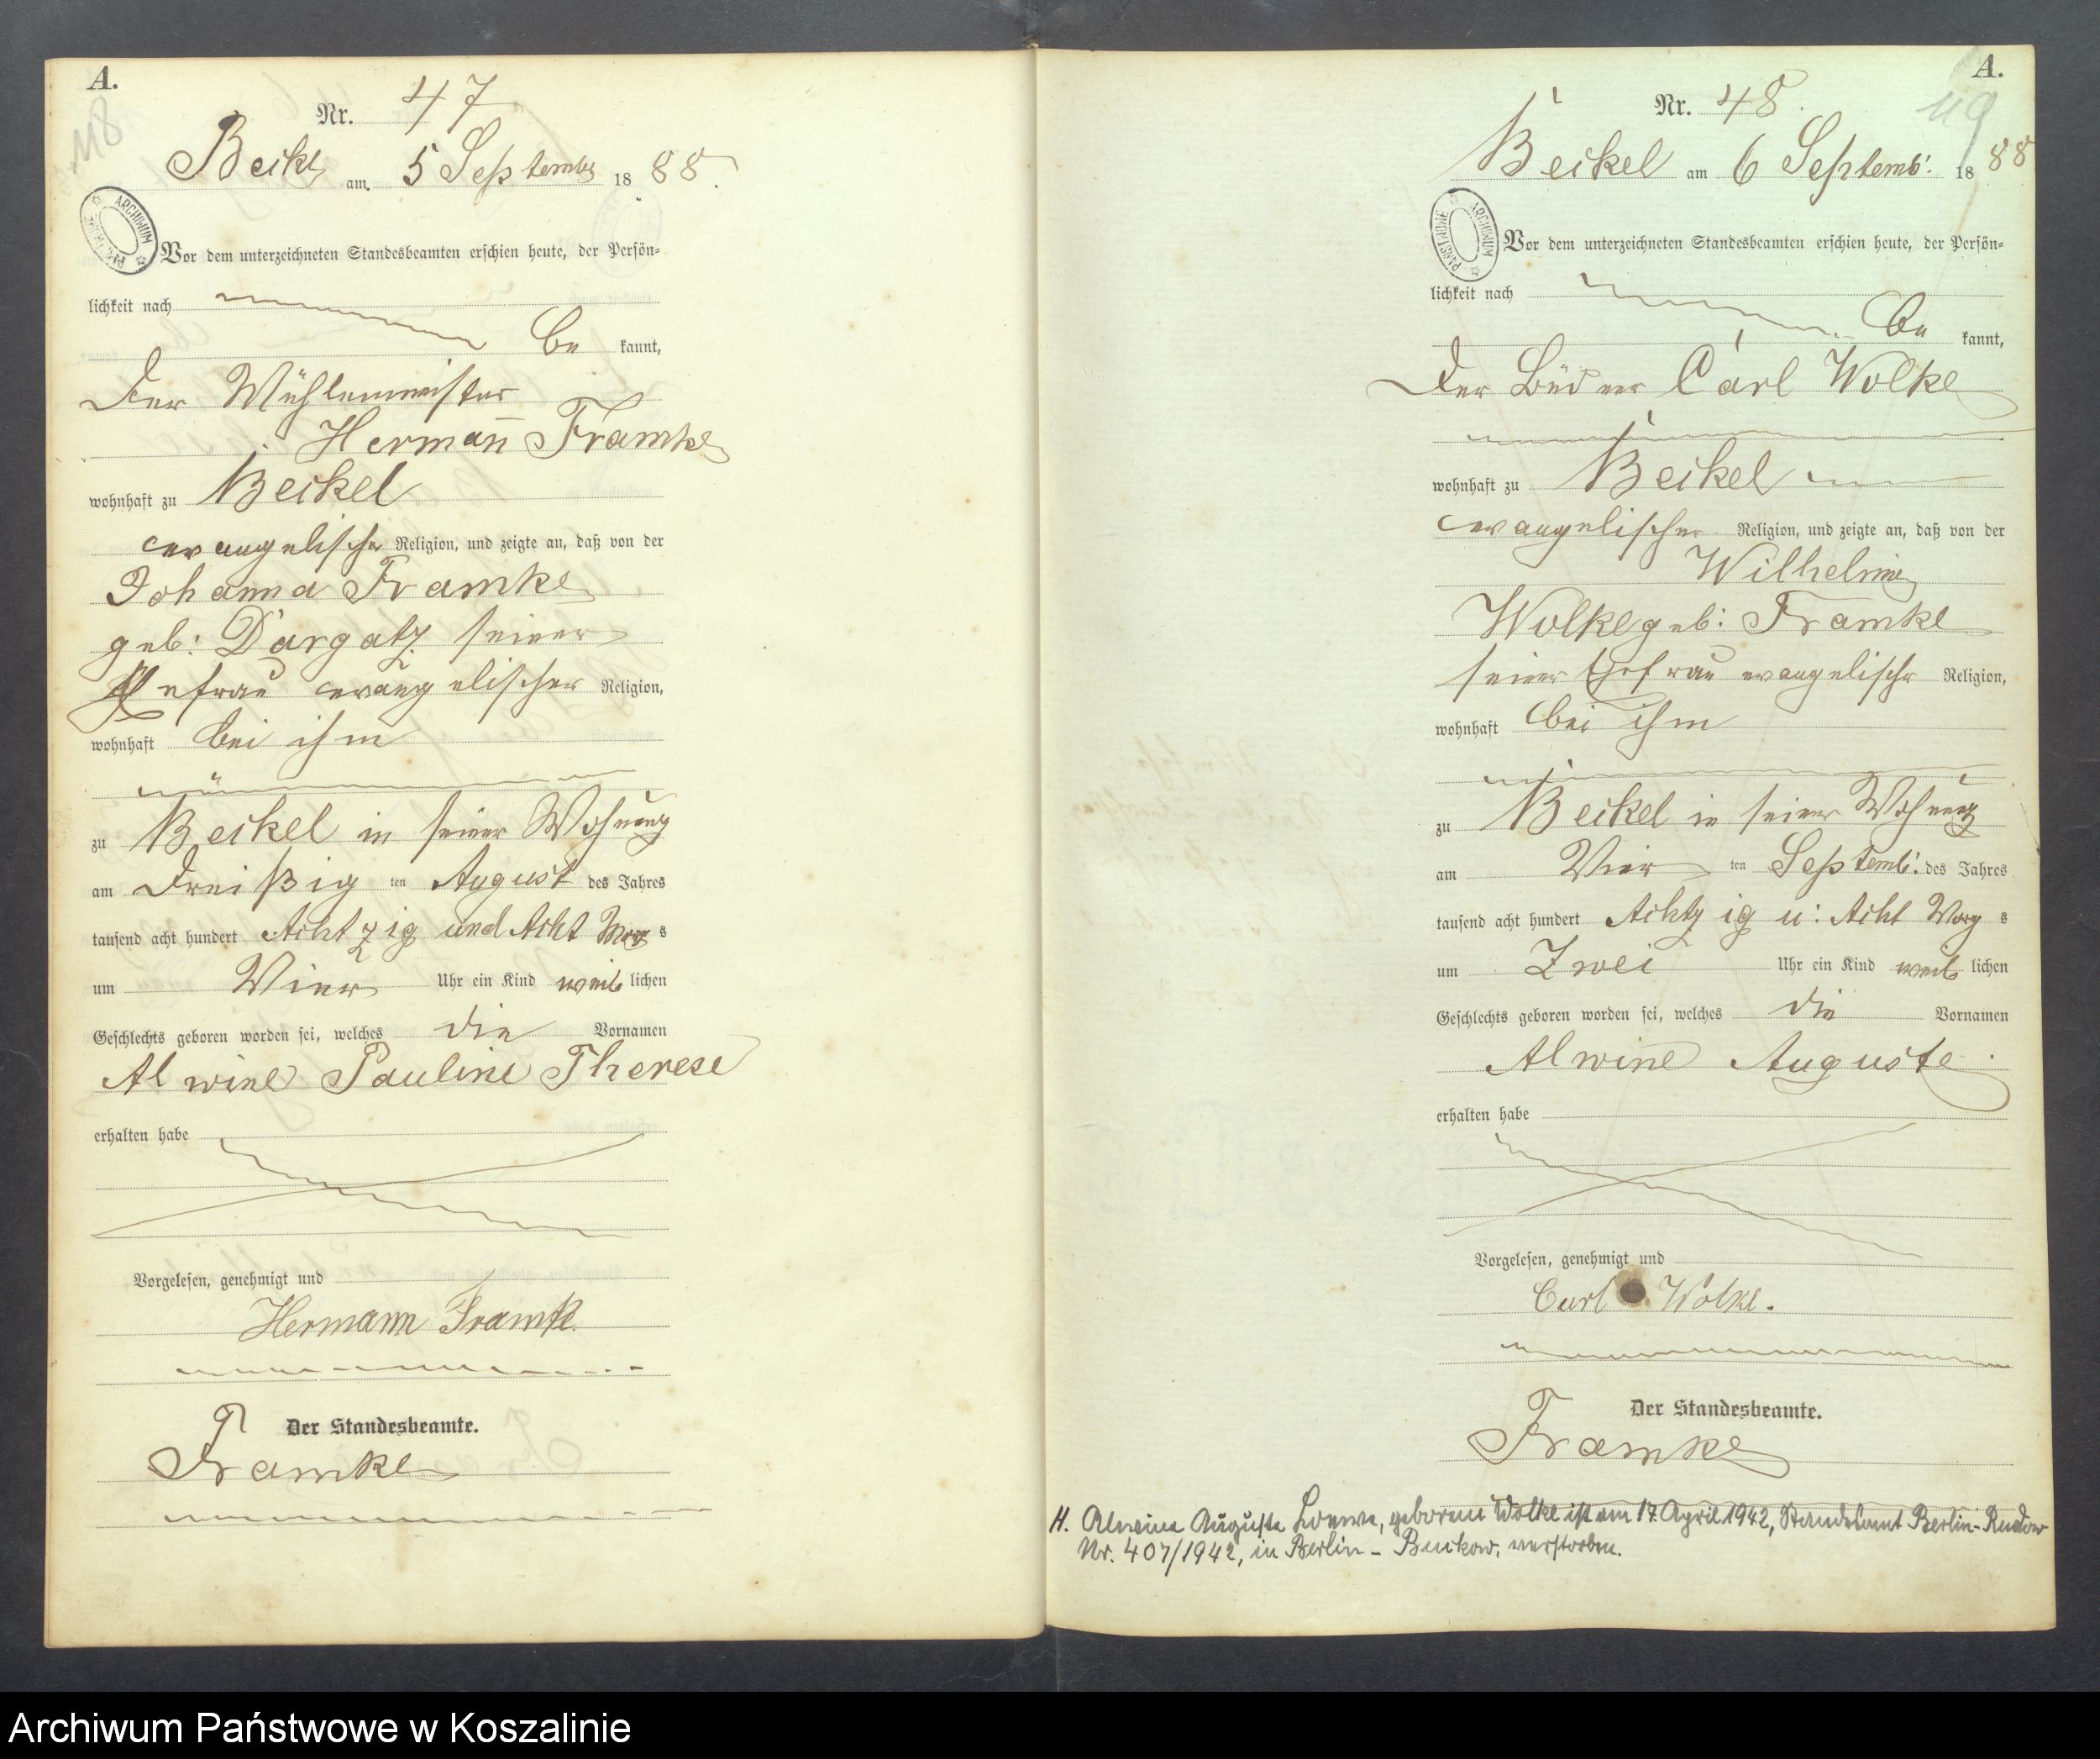 A.
118
Nr. 47
Beikel am 5 September 1888.
ARCHIWUM PAŃSTWOWE
Vor dem unterzeichneten Standesbeamten erschien heute, der Persön-
lichkeit nach
be kannt,
der Mühlenmeister
Herman̄ Framke
wohnhaft zu Beikel
evangelischer Religion, und zeigte an, daß von der
Johanna Framke
geb: Dargatz seiner
Ehefrau evangelischer Religion,
wohnhaft bei ihm
zu Beikel in seiner Wohnung
am Dreißig ten August des Jahres
tausend acht hundert Achtzig und Acht Morgens
um Vier Uhr ein Kind weiblichen
Geschlechts geboren worden sei, welches die Vornamen
Alwine Pauline Therese
erhalten habe
Vorgelesen, genehmigt und
Hermann Framke
Der Standesbeamte.
Framke
A.
119
Nr. 48.
Beikel am 6 Septemb: 1888
ARCHIWUM PAŃSTWOWE
Vor dem unterzeichneten Standesbeamten erschien heute, der Persön-
lichkeit nach
be kannt,
der Büdner Carl Wolke
wohnhaft zu Beikel
evangelischer Religion, und zeigte an, daß von der
Wilhelmine
Wolke geb: Framke
seiner Ehefrau evangelischer Religion,
wohnhaft bei ihm
zu Beikel in seiner Wohnung
am Vier ten Septemb: des Jahres
tausend acht hundert Achtzig u: Acht Morg s
um Zwei Uhr ein Kind weiblichen
Geschlechts geboren worden sei, welches die Vornamen
Alwine Auguste
erhalten habe
Vorgelesen, genehmigt und
Carl Wolke.
Der Standesbeamte.
Framke
H. Alwine Auguste Loewe, geborene Wolke ist am 17. April 1942, Standesamt Berlin-Rudow
Nr. 407/1942, in Berlin-Buckow, verstorben.
Archiwum Państwowe w Koszalinie